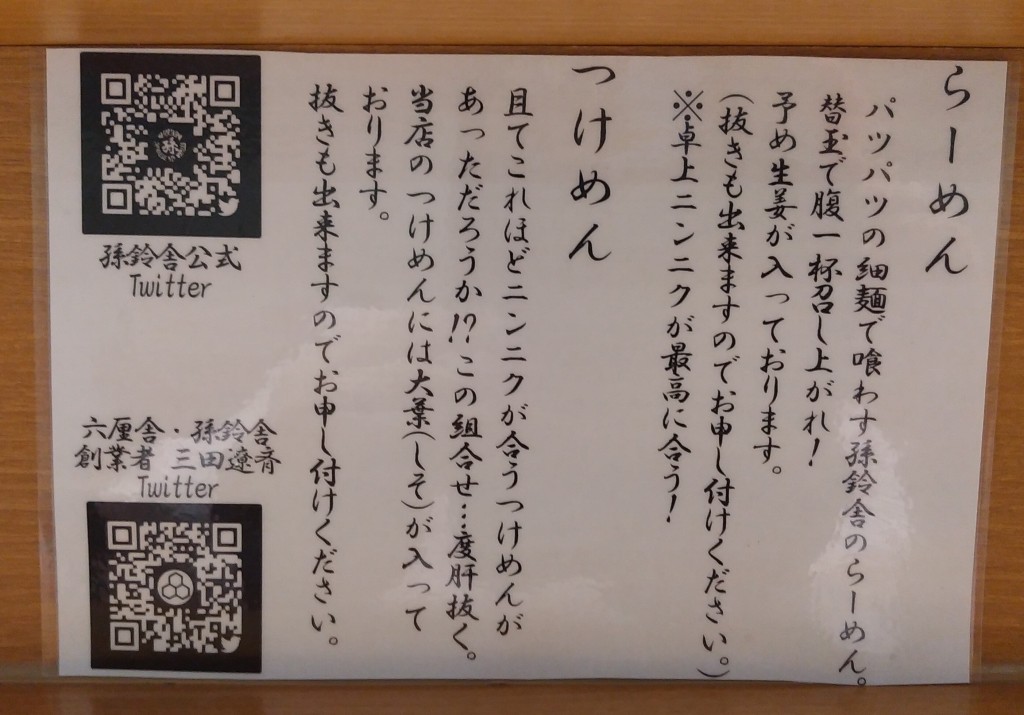 らーめん
パツパツの細麺で喰わす孫鈴舎のらーめん。
替玉で腹一杯召し上がれ！
予め生姜が入っております。
(抜きも出来ますのでお申し付けください。)
※卓上ニンニクが最高に合う！
つけめん
且てこれほどニンニクが合うつけめんが
あっただろうか!?この組合せ…度肝抜く。
当店のつけめんには大葉(しそ)が入って
おります。
抜きも出来ますのでお申し付けください。
孫鈴舎公式
Twitter
六厘舎・孫鈴舎
創業者 三田遼斉
Twitter